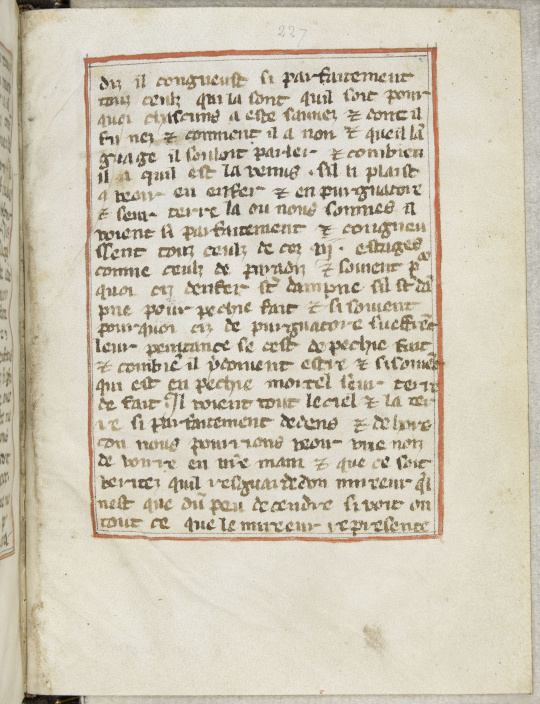 227
dis il congneust si parfaitement
touz ceulz qui la sont quil soit pour
quoi chascuns a este sauuez ⁊ dont il
fu nez ⁊ coment il a non ⁊ queil lā
guage il souloit parler ⁊ combien
il a quil est la venus . sil li plaist
a veoir en enfer ⁊ en purguatore
⁊ seur terre la ou nous sommes il
voient si parfaitement ⁊ congneu
ssent touz ceulz de cez iij . estages
comme ceulz de paradiz ⁊ seuent p
quoi ciz denfer sōt dampne sil sōt dā
pne pour pechie fait ⁊ si seuent
pourquoi ciz de purguatore sueffrēt
leur penitance se cest de pechie fait
⁊ combiē il y doiuent estre ⁊ si
qui est en pechie mortel seur terre
de fait Il voient tout le ciel ⁊ la ter
re si parfaitement dedens ⁊ dehors
con nous pourrions veoir vne non
de voirre en nr̄e main ⁊ que ce soit
veritez quil resguarde don mireur qi
nest que dū peu de cendre si voit on
tout ce que le mireur represente